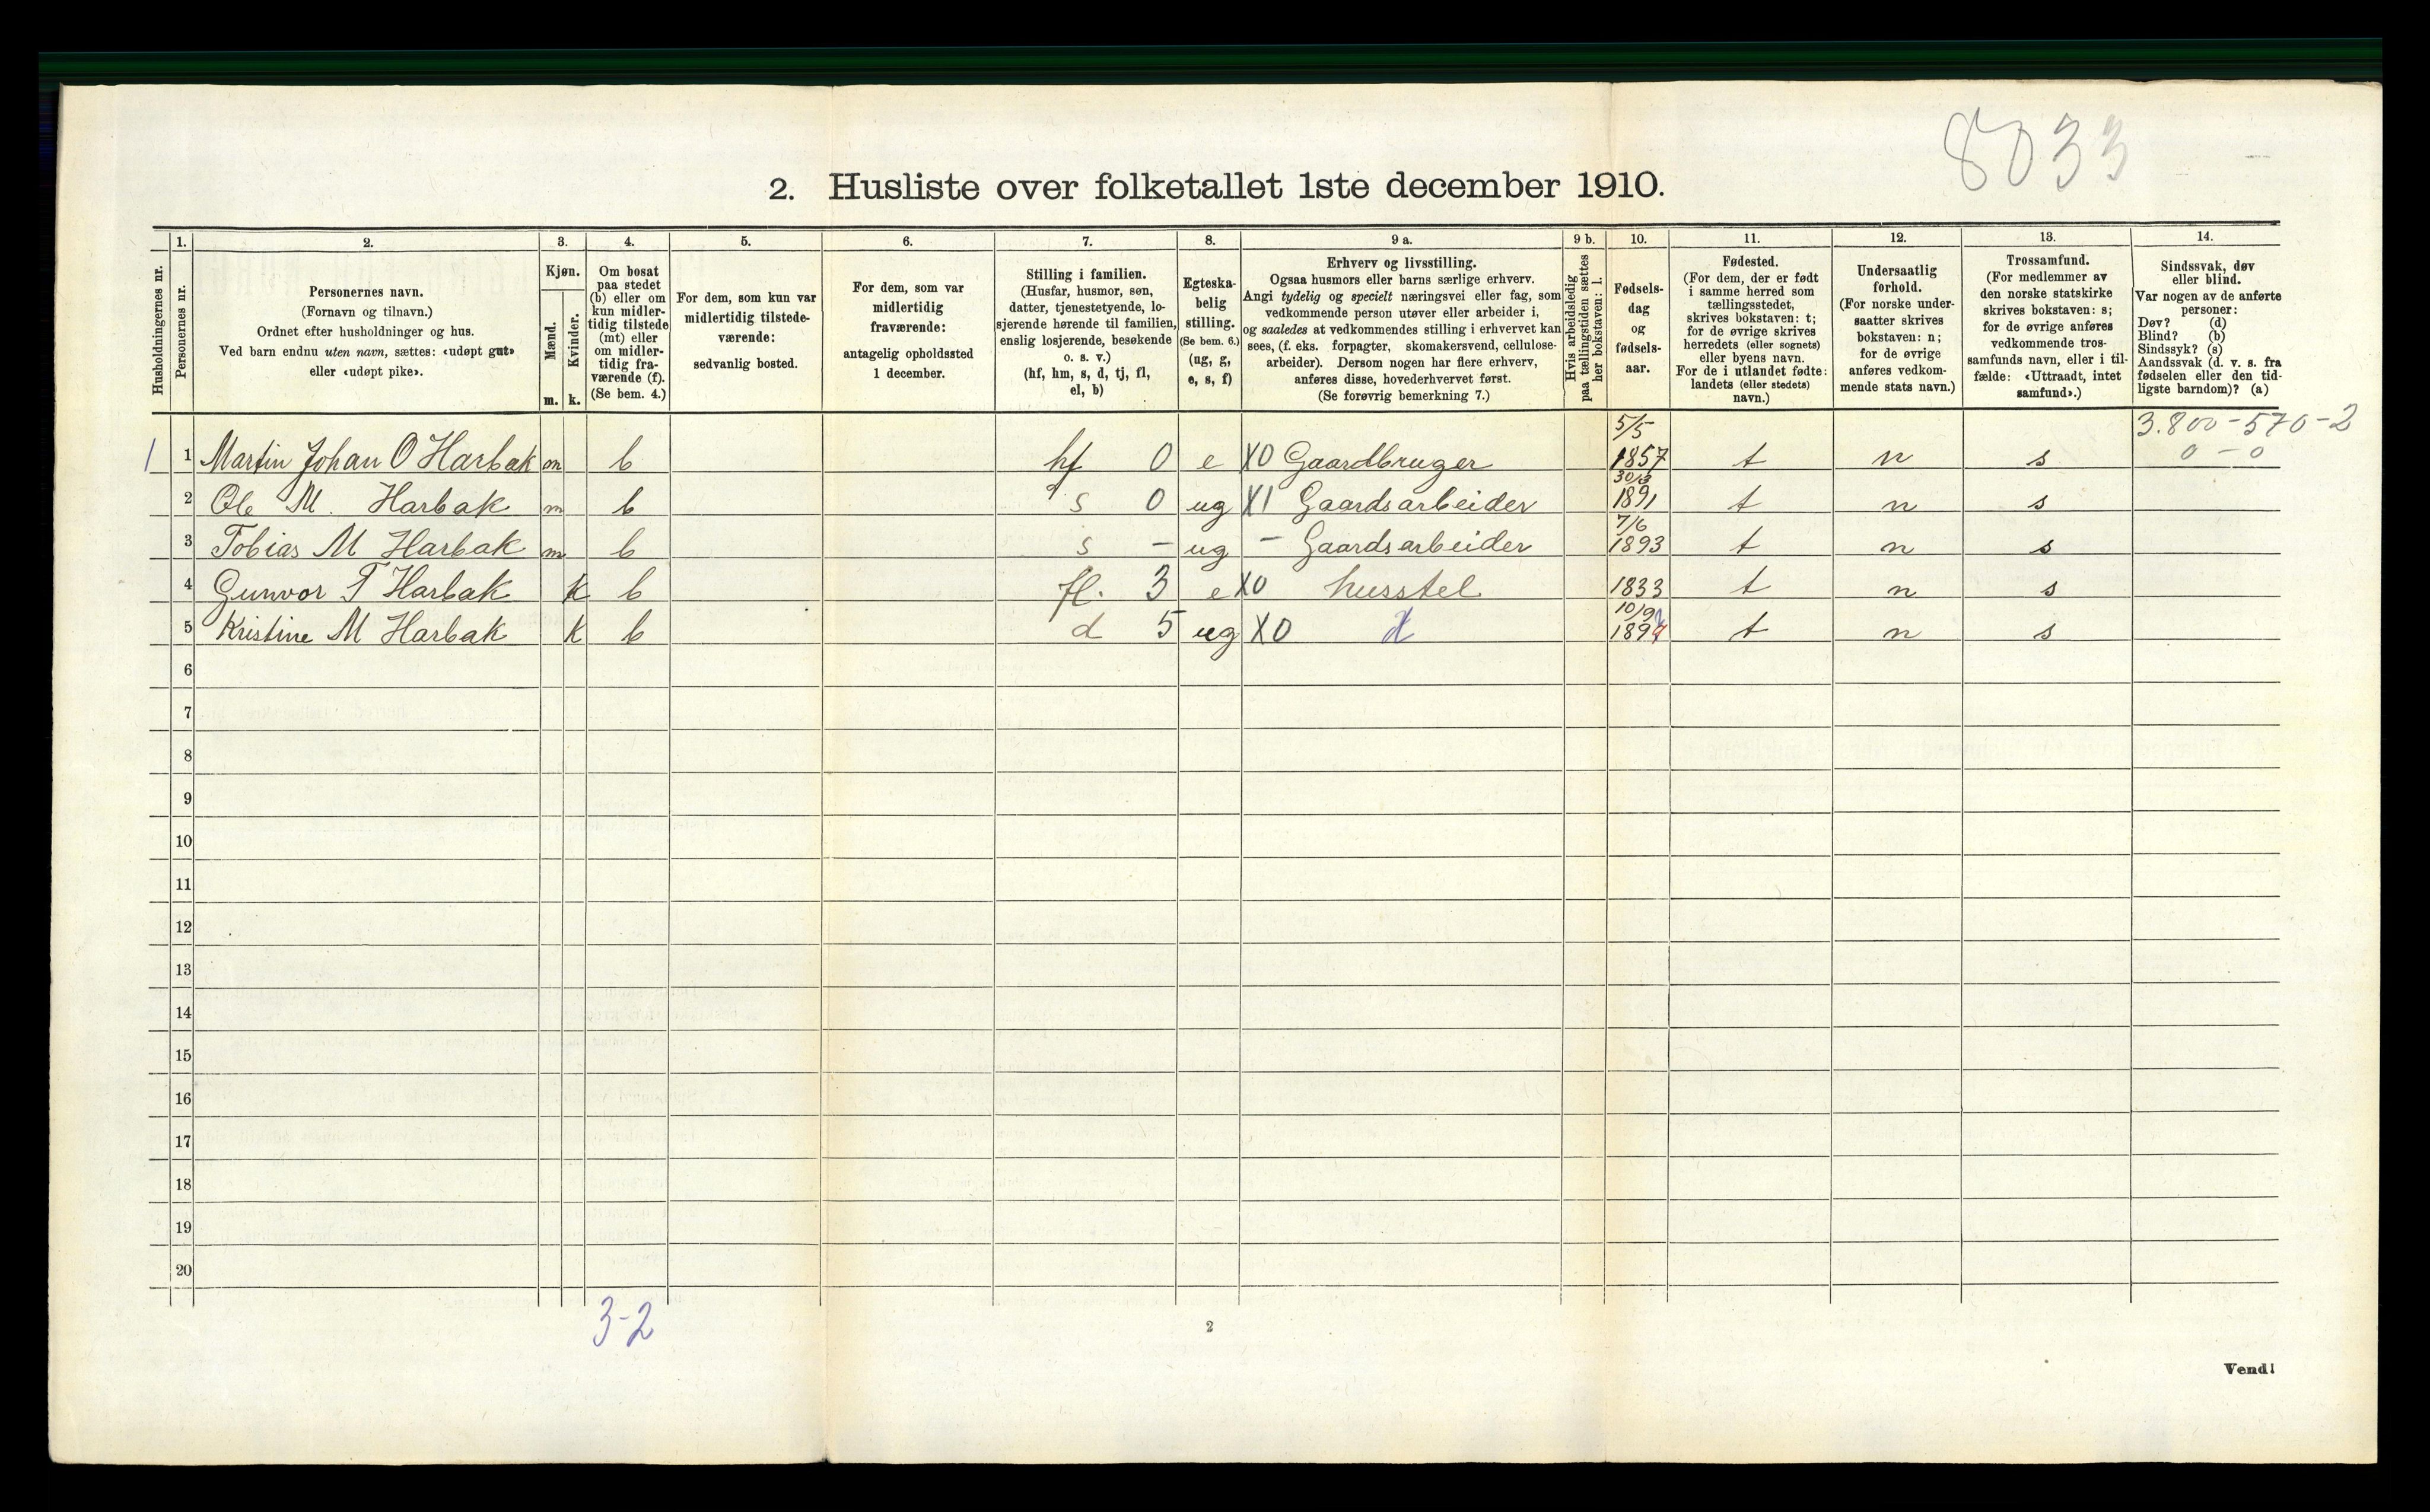 8033
2. Husliste over folketallet 1ste december 1910.
Husholdningernes nr.
1.
Personernes nr.
2.
Personernes navn.
(Fornavn og tilnavn.)
Ordnet efter husholdninger og hus.
Ved barn endnu uten navn, sættes: «udøpt gut»
eller «udøpt pike».
3.
Kjøn.
Mænd.
m.
Kvinder.
k.
4.
Om bosat
paa stedet
(b) eller om
kun midler-
tidig tilstede
(mt) eller
om midler-
tidig fra-
værende (f).
(Se bem. 4.)
5.
For dem, som kun var
midlertidig tilstede-
værende:
sedvanlig bosted.
6.
For dem, som var
midlertidig
fraværende:
antagelig opholdssted
1 december.
7.
Stilling i familien.
(Husfar, husmor, søn,
datter, tjenestetyende, lo-
sjerende hørende til familien,
enslig losjerende, besøkende
o. s. v.)
(hf, hm, s, d, tj, fl,
el, b)
8.
Egteska-
belig
stilling.
(Se bem. 6.)
(ug, g,
e, s, f)
9 a.
Erhverv og livsstilling.
Ogsaa husmors eller barns særlige erhverv.
Angi tydelig og specielt næringsvei eller fag, som
vedkommende person utøver eller arbeider i,
og saaledes at vedkommendes stilling i erhvervet kan
sees, (f. eks. forpagter, skomakersvend, cellulose-
arbeider). Dersom nogen har flere erhverv,
anføres disse, hovederhvervet først.
(Se forøvrig bemerkning 7.)
9 b.
Hvis arbeidsledig
paa tællingstiden sættes
her bokstaven: l.
10.
Fødsels-
dag
og
fødsels-
aar.
11.
Fødested.
(For dem, der er født
i samme herred som
tællingsstedet,
skrives bokstaven: t;
for de øvrige skrives
herredets (eller sognets)
eller byens navn.
For de i utlandet fødte:
landets (eller stedets)
navn.)
12.
Undersaatlig
forhold.
(For norske under-
saatter skrives
bokstaven: n;
for de øvrige
anføres vedkom-
mende stats navn.)
13.
Trossamfund.
(For medlemmer av
den norske statskirke
skrives bokstaven: s;
for de øvrige anføres
vedkommende tros-
samfunds navn, eller i til-
fælde: «Uttraadt, intet
samfund».)
14.
Sindssvak, døv
eller blind.
Var nogen av de anførte
personer:
Døv? (d)
Blind? (b)
Sindssyk? (s)
Aandssvak (d. v. s. fra
fødselen eller den tid-
ligste barndom)? (a)
3.800-570-2
0-0
1 1 Martin Johan O Harbak m b hf 0 e X0 Gaardbruger 5/5 1857 t n s
2 Ole M. Harbak m b s 0 ug X1 Gaardsarbeider 30/3 1891 t n s
3 Tobias M Harbak m b s - ug - Gaardsarbeider 7/6 1893 t n s
4 Gunvor T Harbak k b fl. 3 e X0 husstel 1833 t n s
5 Kristine M Harbak k b d 5 ug X0 10/9 t n s
6
7
8
9
10
11
12
13
14
15
16
17
18
19
20
3-2
2
Vend!